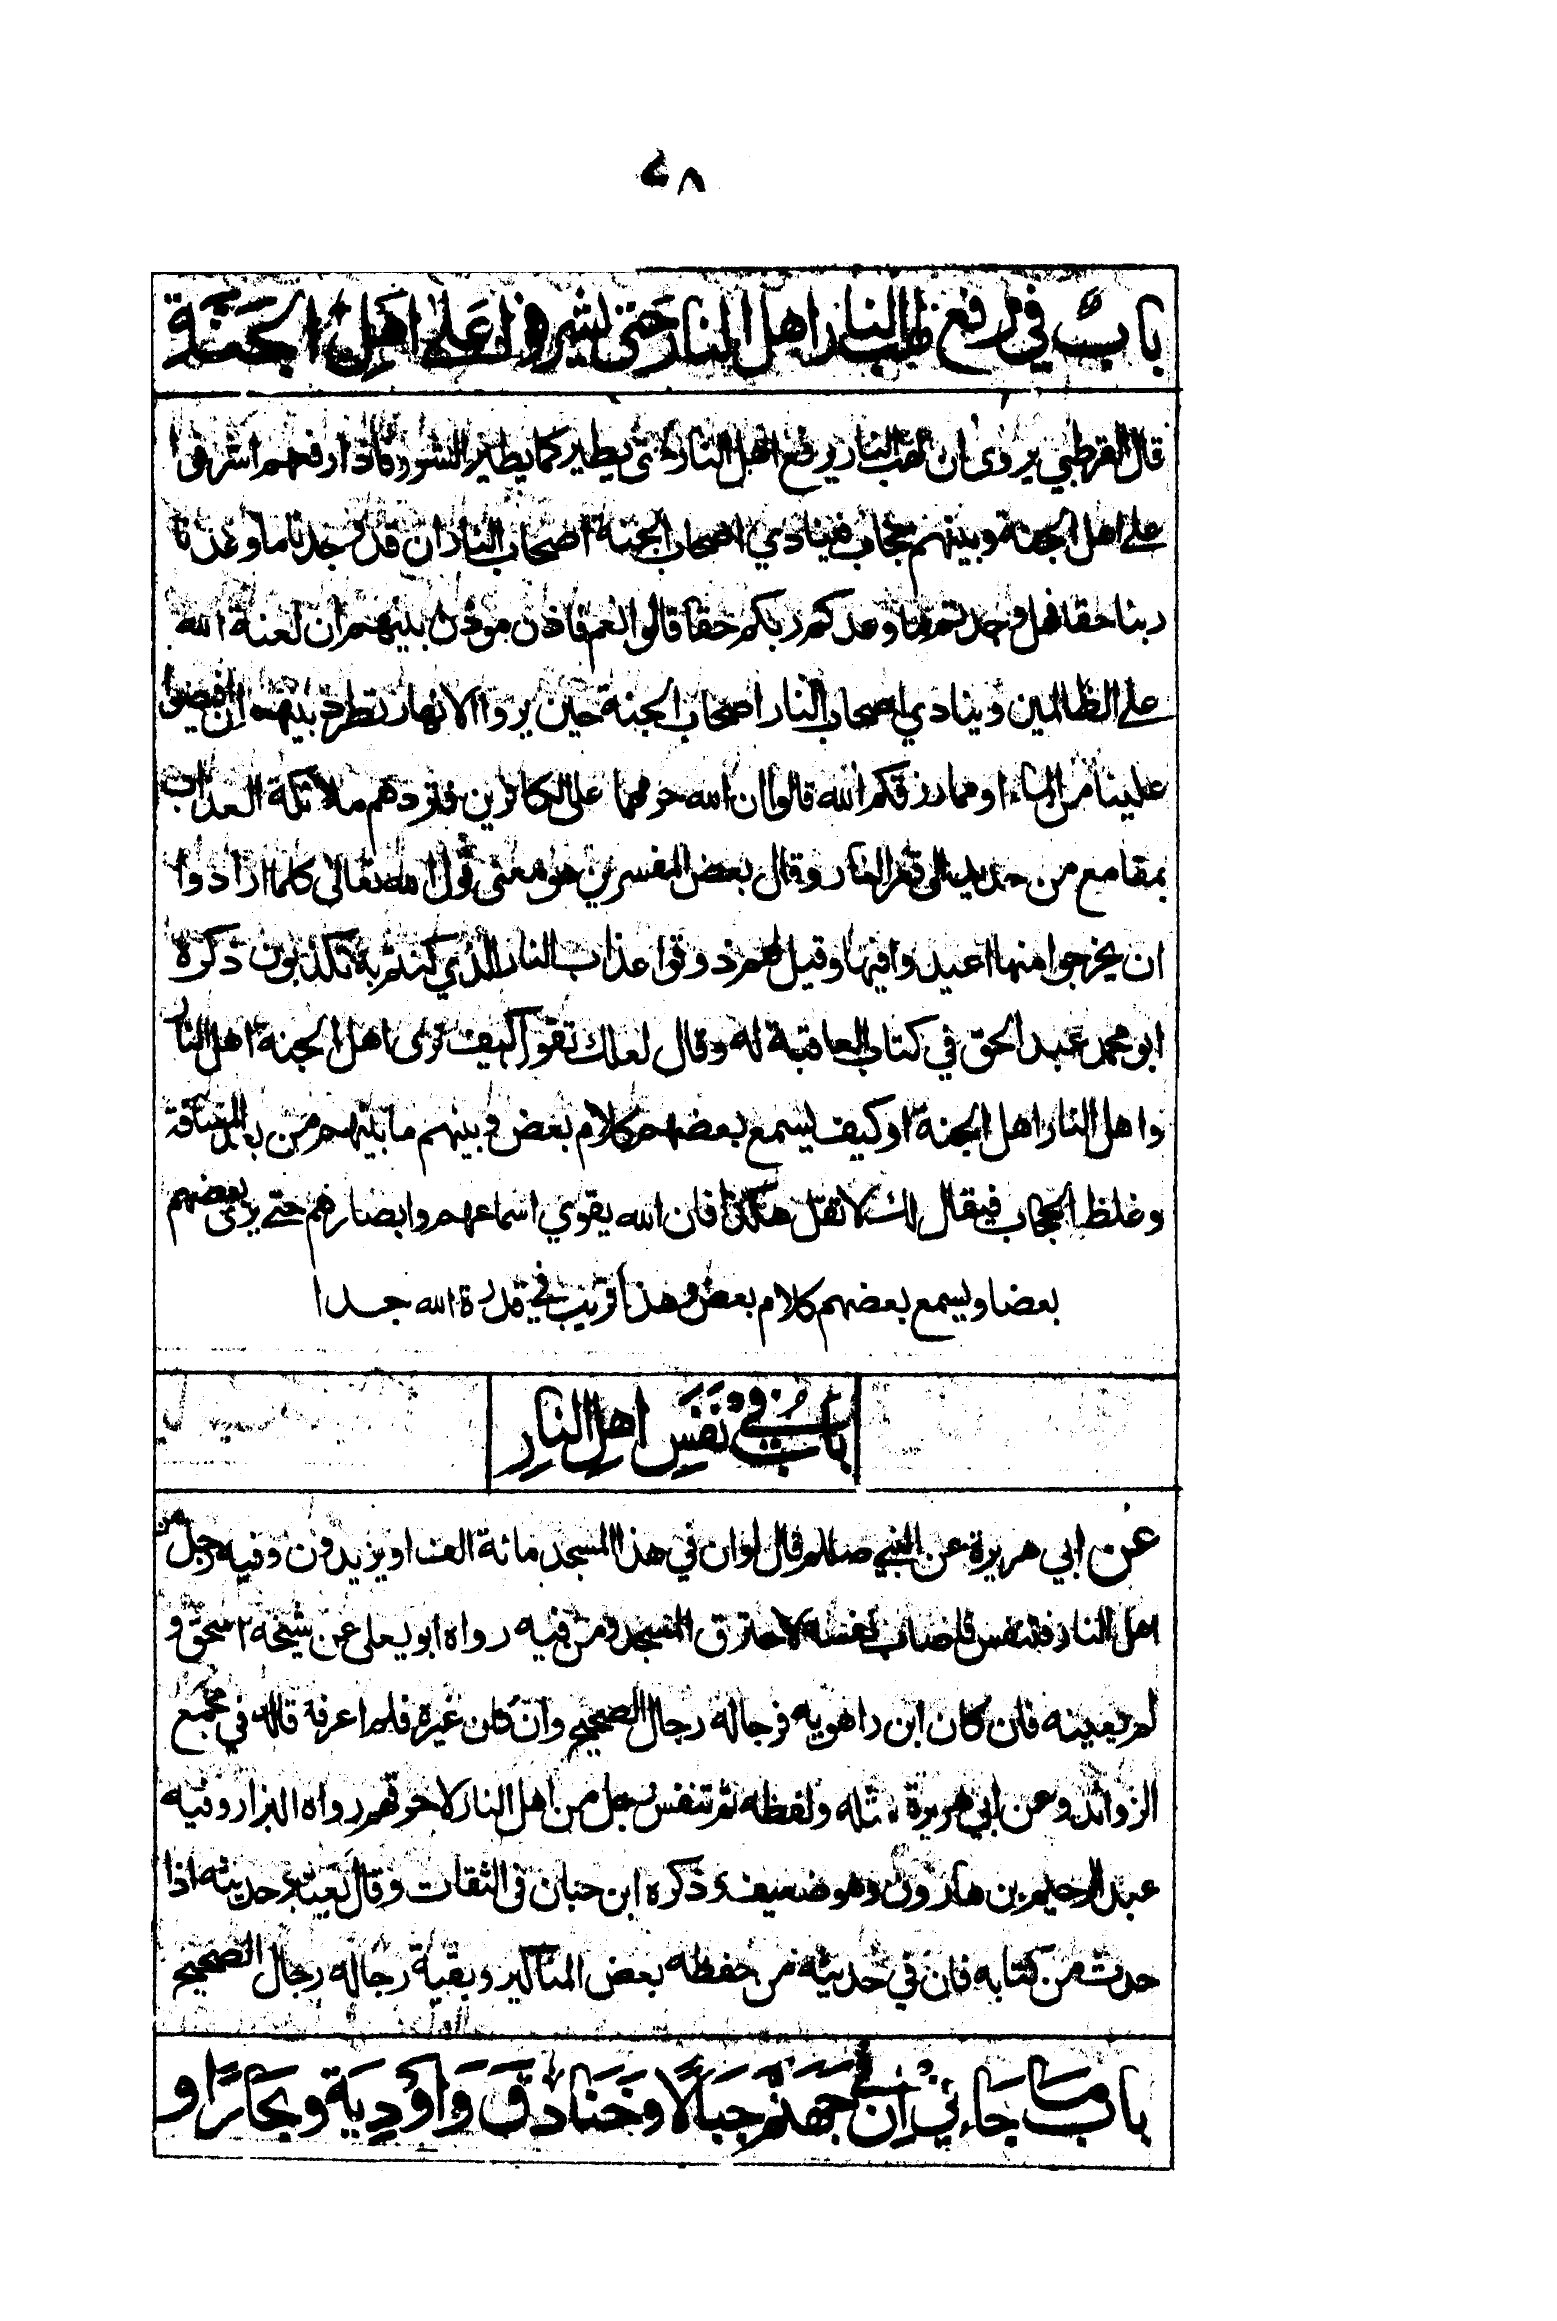 ٤٨
باب في رفع لهب النار اهل النار حتى يشرفوا على اهل الجنة
قال القرطبي يروى ان لهب النار يرفع اهل النار حتى يطير كما يطير الشرر فاذا رفعهم اشرفوا
على اهل الجنة وبينهم حجاب فينادي اصحاب الجنة اصحاب النار ان قد وجدنا ما وعدنا
ربنا حقا فهل وجدتم ما وعدكم ربكم حقا قالوا نعم فاذن موذن بينهم ان لعنة الله
على الظالمين وينادي اصحاب النار اصحاب الجنة حين يروا الانهار تطرد بينهم ان افيضوا
علينا من الماء او مما رزقكم الله قالوا ان الله حرمهما على الكافرين فتردهم ملائكة العذاب
بمقامع من حديد الى قعر النار وقال بعض المفسرين هو معنى قول الله تعالى كلما ارادوا
ان يخرجوا منها اعيدوا فيها وقيل لهم ذوقوا عذاب النار الذي كنتم به تكذبون ذكره
ابو محمد عبد الحق في كتاب العاقبة له وقال لعلك تقول كيف ترى اهل الجنة اهل النار
واهل النار اهل الجنة او كيف يسمع بعضهم كلام بعض وبينهم ما بينهم من بعد المسافة
وغلظ الحجاب فيقال لك لا تقل هكذا فان الله يقوي اسماعهم وابصارهم حتى يرى بعضهم
بعضا ويسمع بعضهم كلام بعض وهذا قريب في قدرة الله جدا
باب في نفس اهل النار
عن ابي هريرة عن النبي صللم قال لو ان في هذا المسجد مائة الف او يزيدون وفيه رجل من
اهل النار فتنفس فاصاب نفسه لاحترق المسجد ومن فيه رواه ابو يعلى عن شيخه اسحق و
لم يعينه فان كان ابن راهويه فرجاله رجال الصحيح وان كان غيره فلم اعرفه قاله في مجمع
الزوائد وعن ابي هريرة مثله ولفظه ثم تنفس رجل من اهل النار لاحرقهم رواه البزار وفيه
عبد الرحيم بن هارون وهو ضعيف ذكره ابن حبان في الثقات وقال يعتبر حديثه اذا
حدث من كتابه فان في حديثه من حفظه بعض المناكير وبقية رجاله رجال الصحيح
باب ما جاء في ان في جهنم جبالا وخنادق واودية وبحارا و